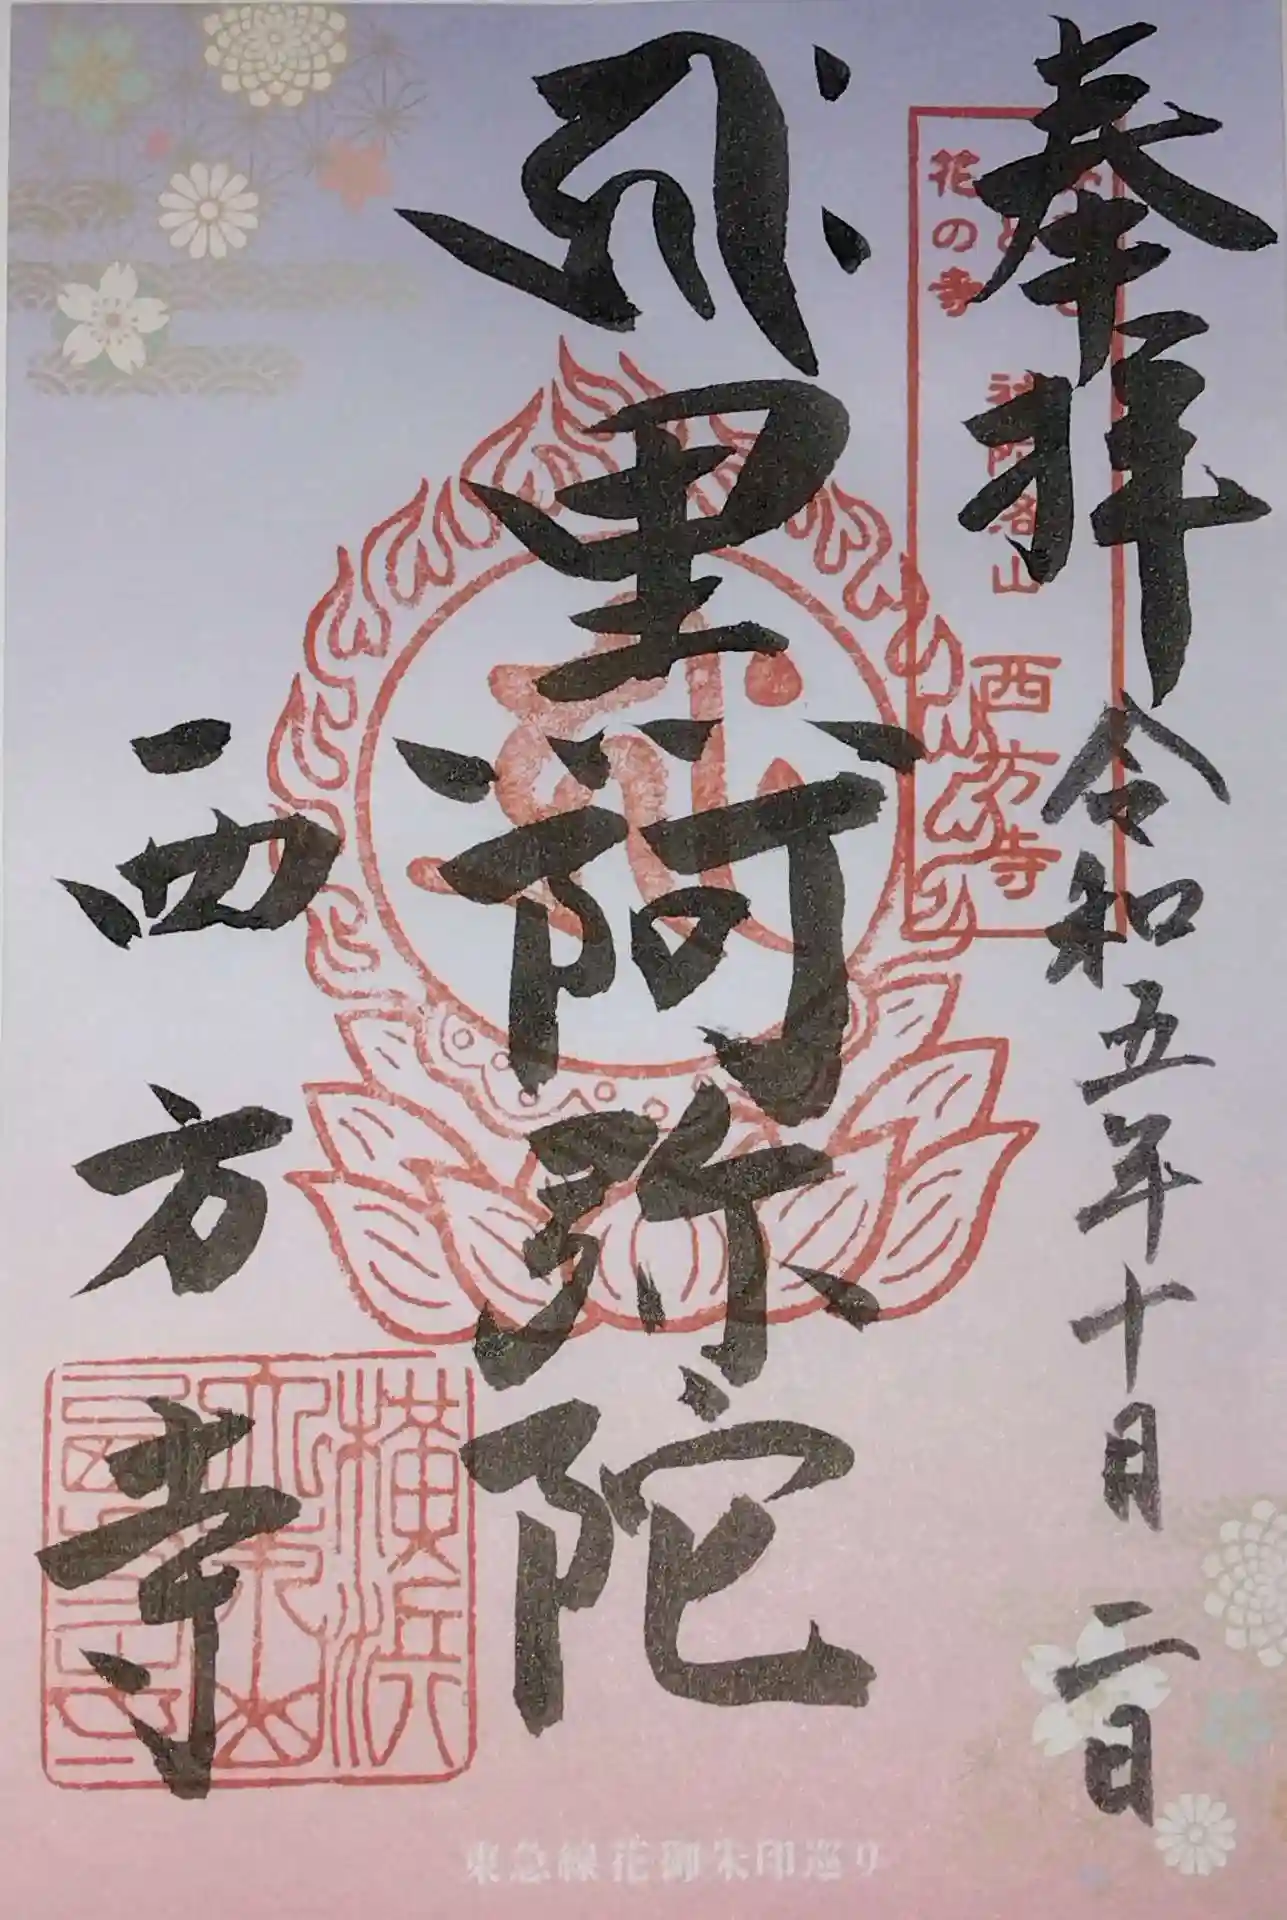 奉拝 令和五年十月二日
花の寺
西方寺
阿弥陀
西方寺
横浜
東急線花御朱印巡り